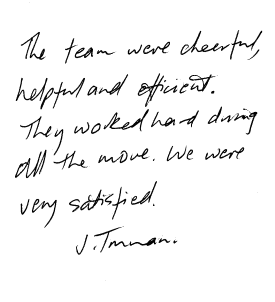 The team were cheerful,
helpful and efficient.
They worked hard during
all the move. We were
very satisfied.
J.